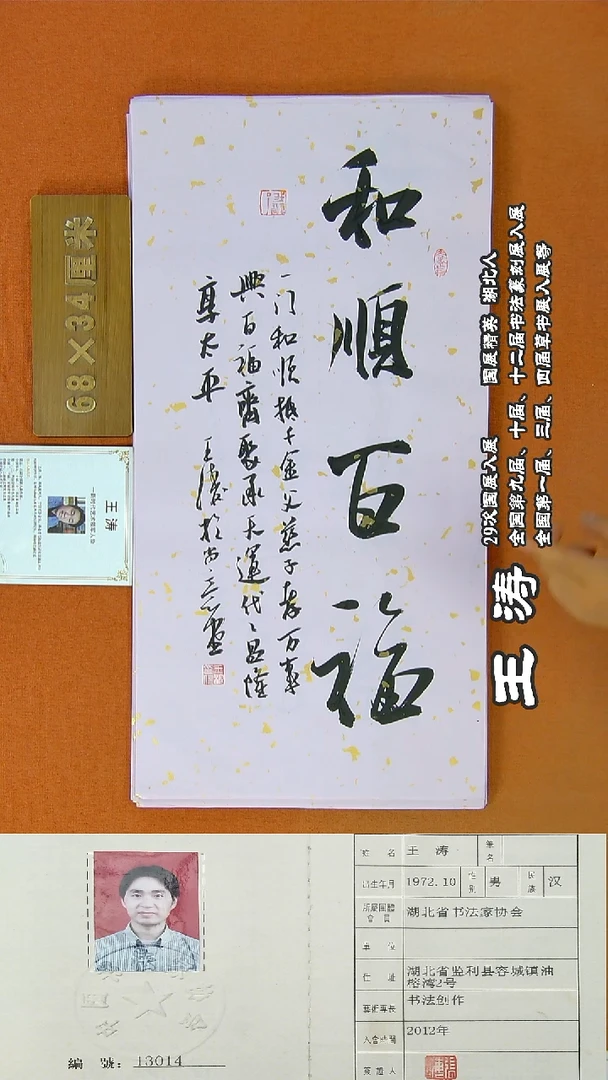 和順百福
一门和顺抵千金父慈子孝万事
興百福齊聚承天運代々昌隆
享太平 王涛於书
68×34厘米
王涛
29次国展入展 国展精英 湖北人
全国第九届、十届、十二届书法篆刻展入展
全国第一届、三届、四届草书展入展等
王涛
编號：13014
姓名 王涛 筆名
出生年月 1972.10 性别 男 民族 汉
所屬團體會員 湖北省书法家协会
單位
住址 湖北省监利县容城镇油
榨湾2号
藝術專長 书法创作
入會時間 2012年
簽證人